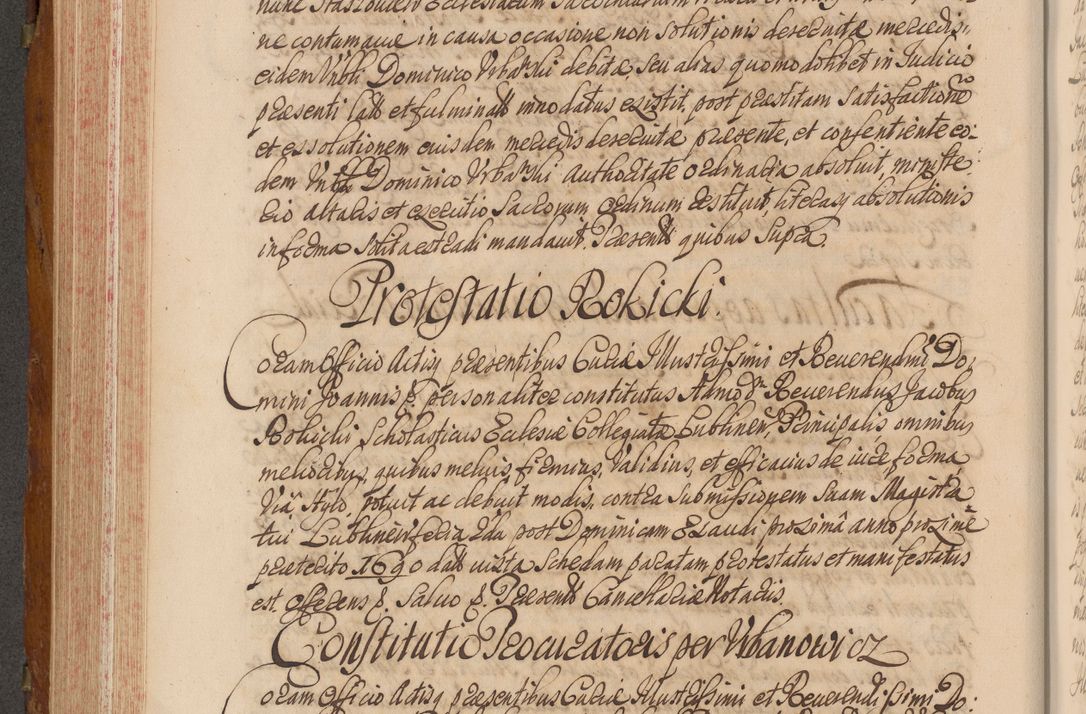 ne contumaciæ in causa occasione non solutionis deseruitæ mercedis,
eidem Vrbli Dominico Vrbański debitæ, seu alias quomodolibet in Judicio
præsenti latt et fulminatt innodatus existit, post præstitam satisfactione
et exsolutionem eiusdem mercedis deseruitæ præsente, et consentiente eo:
dem Vrbli Dominico Vrbański authoritate ordinaria absoluit, ministe:
rio altaris et executio Sacrorum Ordinum restituit, literasq absolutionis
in forma solita extradi mandauit. Præsentt quibus Supra
Protestatio Rokicki.
Coram Officio Actisq præsentibus Curiæ Illustrissimi et Reuerendmi Do,
mini Joannis p. personaliter constitutus Admod R. Reuerendus Jacobus
Rokicki Scholasticus Eclesiæ Collegiatæ Lublinen, Principalis omnibus
melioribus, quibus melius, firmius, validius, et efficacius de iure, forma,
via, stylo, potuit ac debuit modis, contra submissionem suam Magistra
tui Lublinen feria 2da post Dominicam Exaudi proximâ anno proximè
præterito 1690 datt iuxta Schedam paratam protestatus et manifestatus
est. offerens p. Saluo p. Præsentt Cancellariæ Notariis.
Constitutio Procuratoris per Vrbanowicz
Coram Officio Actisq præsentibus Curiæ Illustrissimi et Reuerendissimi Do: